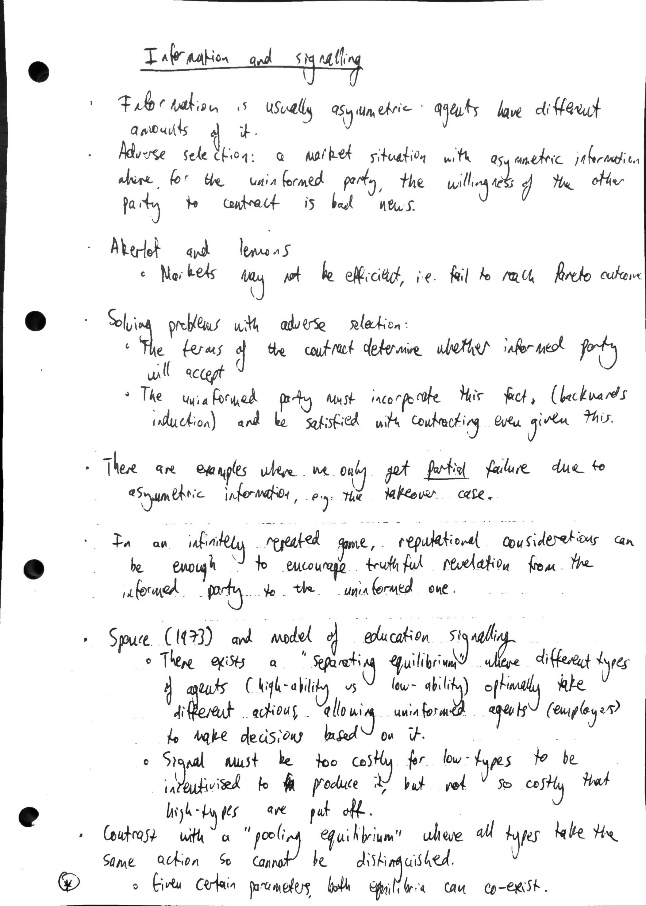 Information and signalling
· Information is usually asymmetric · agents have different
amounts of it.
· Adverse selection: a market situation with asymmetric information
where, for the uninformed party, the willingness of the other
party to contract is bad news.
· Akerlof and lemons
∘ Markets may not be efficient, i.e. fail to reach Pareto outcome
· Solving problems with adverse selection:
∘ The terms of the contract determine whether informed party
will accept
∘ The uninformed party must incorporate this fact, (backwards
induction) and be satisfied with contracting even given this.
· There are examples where we only get partial failure due to
asymmetric information, e.g. the takeover case.
· In an infinitely repeated game, reputational considerations can
be enough to encourage truthful revelation from the
informed party to the uninformed one.
· Spence (1973) and model of education signalling
∘ There exists a "separating equilibrium" where different types
of agents (high-ability vs low-ability) optimally take
different actions, allowing uninformed agents (employers)
to make decisions based on it.
∘ Signal must be too costly for low-types to be
incentivised to produce it, but not so costly that
high-types are put off.
· Contrast with a "pooling equilibrium" where all types take the
same action so cannot be distinguished.
∘ Given certain parameters, both equilibria can co-exist.